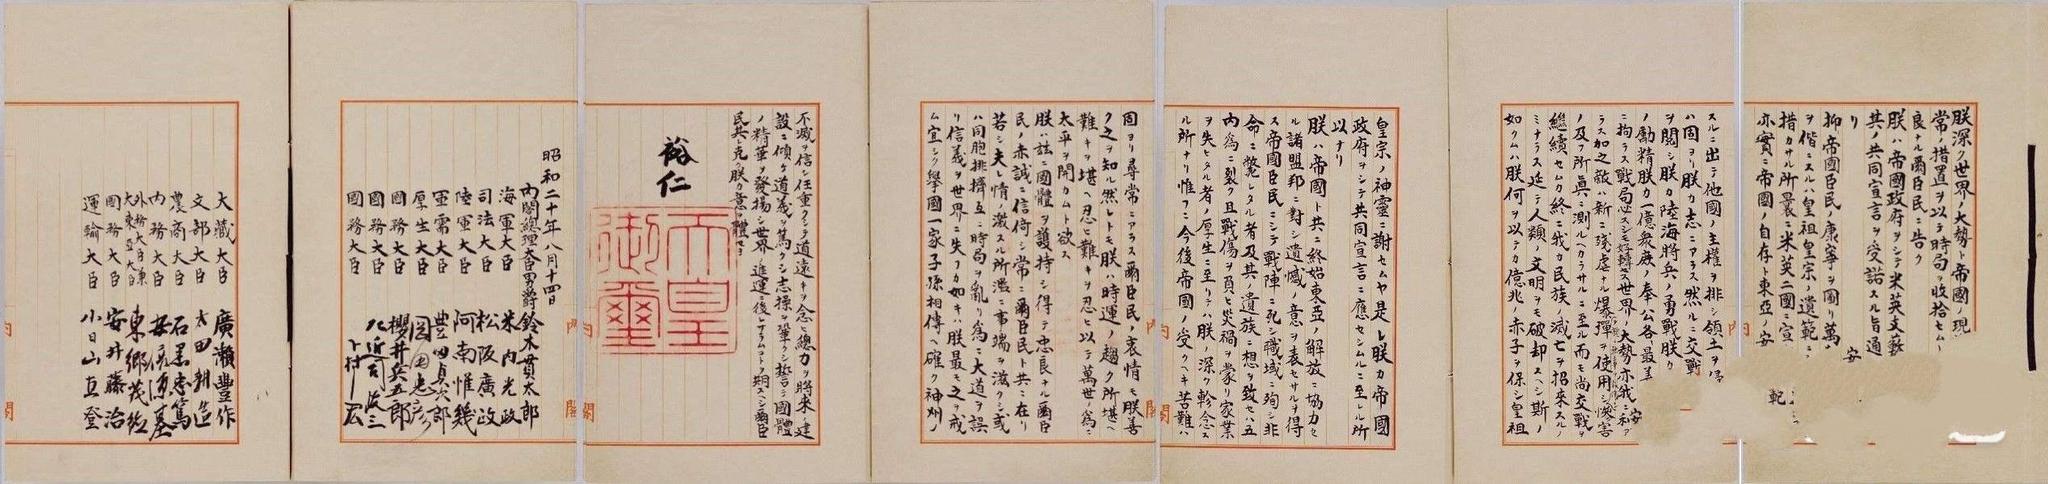 朕深ク世界ノ大勢ト帝國ノ現
常ノ措置ヲ以テ時局ヲ收拾セム
良ナル爾臣民ニ告ク
朕ハ帝國政府ヲシテ米英支蘇
其ノ共同宣言ヲ受諾スル旨通
リ
抑帝國臣民ノ康寧ヲ圖リ萬
ヲ偕ニスルハ皇祖皇宗ノ遺範ニ
措カサル所曩ニ米英二國ニ宣
亦實ニ帝國ノ自存ト東亞ノ安
スルニ出テ他國ノ主權ヲ排シ領土ヲ
ハ固ヨリ朕カ志ニアラス然ルニ交戰
ヲ閲シ朕カ陸海將兵ノ勇戰朕カ
ノ勵精朕カ一億衆庶ノ奉公各最善
ニ拘ラス戰局必スシモ好轉セス世界ノ大勢亦我ニ利ア
ラス加之敵ハ新ニ殘虐ナル爆彈ヲ使用シ慘害
ノ及フ所眞ニ測ルヘカラサルニ至ル而モ尚交戰ヲ
繼續セムカ終ニ我カ民族ノ滅亡ヲ招來スルノ
ミナラス延テ人類ノ文明ヲモ破却スヘシ斯ノ
如クムハ朕何ヲ以テカ億兆ノ赤子ヲ保シ皇祖
皇宗ノ神靈ニ謝セムヤ是レ朕カ帝國
政府ヲシテ共同宣言ニ應セシムルニ至レル所
以ナリ
朕ハ帝國ト共ニ終始東亞ノ解放ニ協力セ
ル諸盟邦ニ對シ遺憾ノ意ヲ表セサルヲ得
ス帝國臣民ニシテ戰陣ニ死シ職域ニ殉シ非
命ニ斃レタル者及其ノ遺族ニ想ヲ致セハ五
内爲ニ裂ク且戰傷ヲ負ヒ災禍ヲ蒙リ家業
ヲ失ヒタル者ノ厚生ニ至リテハ朕ノ深ク軫念ス
ル所ナリ惟フニ今後帝國ノ受クヘキ苦難ハ
固ヨリ尋常ニアラス爾臣民ノ衷情モ朕善
ク之ヲ知ル然レトモ朕ハ時運ノ趨ク所堪ヘ
難キヲ堪ヘ忍ヒ難キヲ忍ヒ以テ萬世ノ爲ニ
太平ヲ開カムト欲ス
朕ハ茲ニ國體ヲ護持シ得テ忠良ナル爾臣
民ノ赤誠ニ信倚シ常ニ爾臣民ト共ニ在リ
若シ夫レ情ノ激スル所濫ニ事端ヲ滋クシ或
ハ同胞排擠互ニ時局ヲ亂リ爲ニ大道ヲ誤
リ信義ヲ世界ニ失フカ如キハ朕最モ之ヲ戒
ム宜シク擧國一家子孫相傳ヘ確ク神州ノ
不滅ヲ信シ任重クシテ道遠キヲ念ヒ總力ヲ將來ノ建
設ニ傾ケ道義ヲ篤クシ志操ヲ鞏クシ誓テ國體
ノ精華ヲ發揚シ世界ノ進運ニ後レサラムコトヲ期スヘシ爾臣
民其レ克ク朕カ意ヲ體セヨ
裕仁
天皇御璽
昭和二十年八月十四日
内閣總理大臣男爵 鈴木貫太郎
海軍大臣 米内光政
司法大臣 松阪廣政
陸軍大臣 阿南惟幾
軍需大臣 豊田貞次郎
厚生大臣 岡田忠彦
國務大臣 櫻井兵五郎
國務大臣 左近司政三
國務大臣 下村宏
大藏大臣 廣瀬豐作
文部大臣 太田耕造
農商大臣 石黒忠篤
内務大臣 安倍源基
外務大臣兼大東亞大臣 東郷茂徳
國務大臣 安井藤治
運輸大臣 小日山直登